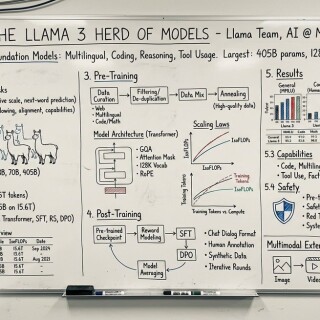 THE LLAMA 3 HERD OF MODELS - Llama Team, AI @ M
undation Models: Multilingual, Coding, Reasoning, Tool Usage. Largest: 405B params, 128
sks
ive scale, next-word prediction)
lowing, alignment, capabilities)
8B, 70B, 405B)
5T tokens)
B on 15.6T)
Transformer, SFT, RS, DPO)
rview
3. Pre-Training
Data Curation
Filtering/De-duplication
Data Mix
Annealing
(High-quality data)
- Web
- Multilingual
- Code/Math
Model Architecture (Transformer)
GQA
Attention Mask
128K Vocab
RoPE
Scaling Laws
IsoFLOPs
IsoFLOPs
Training Tokens
Training Tokens vs. Compute
4. Post-Training
Pre-trained Checkpoint
Reward Modeling
SFT
DPO
Model Averaging
• Chat Dialog Format
• Human Annotation
• Synthetic Data
• Iterative Rounds
5. Results
General (MMLU)
5.3 Capabilities
• Code, Multiling
• Tool Use, Fact
5.4 Safety
• Pre-t
• Safet
• Red T
• Safet
Multimodal Exten
Image
Video